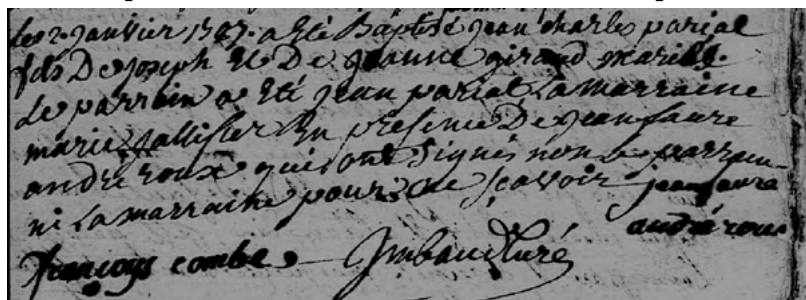 les 2. janvier 1787. a Eté Baptisé jean charle parial
fds De joseph Et De jeanne giraud mariés.
le parrain a Eté jean parial La marraine
marie jallifier En présence De jean faure
andré roux qui ont signés non le parrain
ni La marraine pour ne sçavoir jean faure
andré roux
françoys combe Imbaud Curé